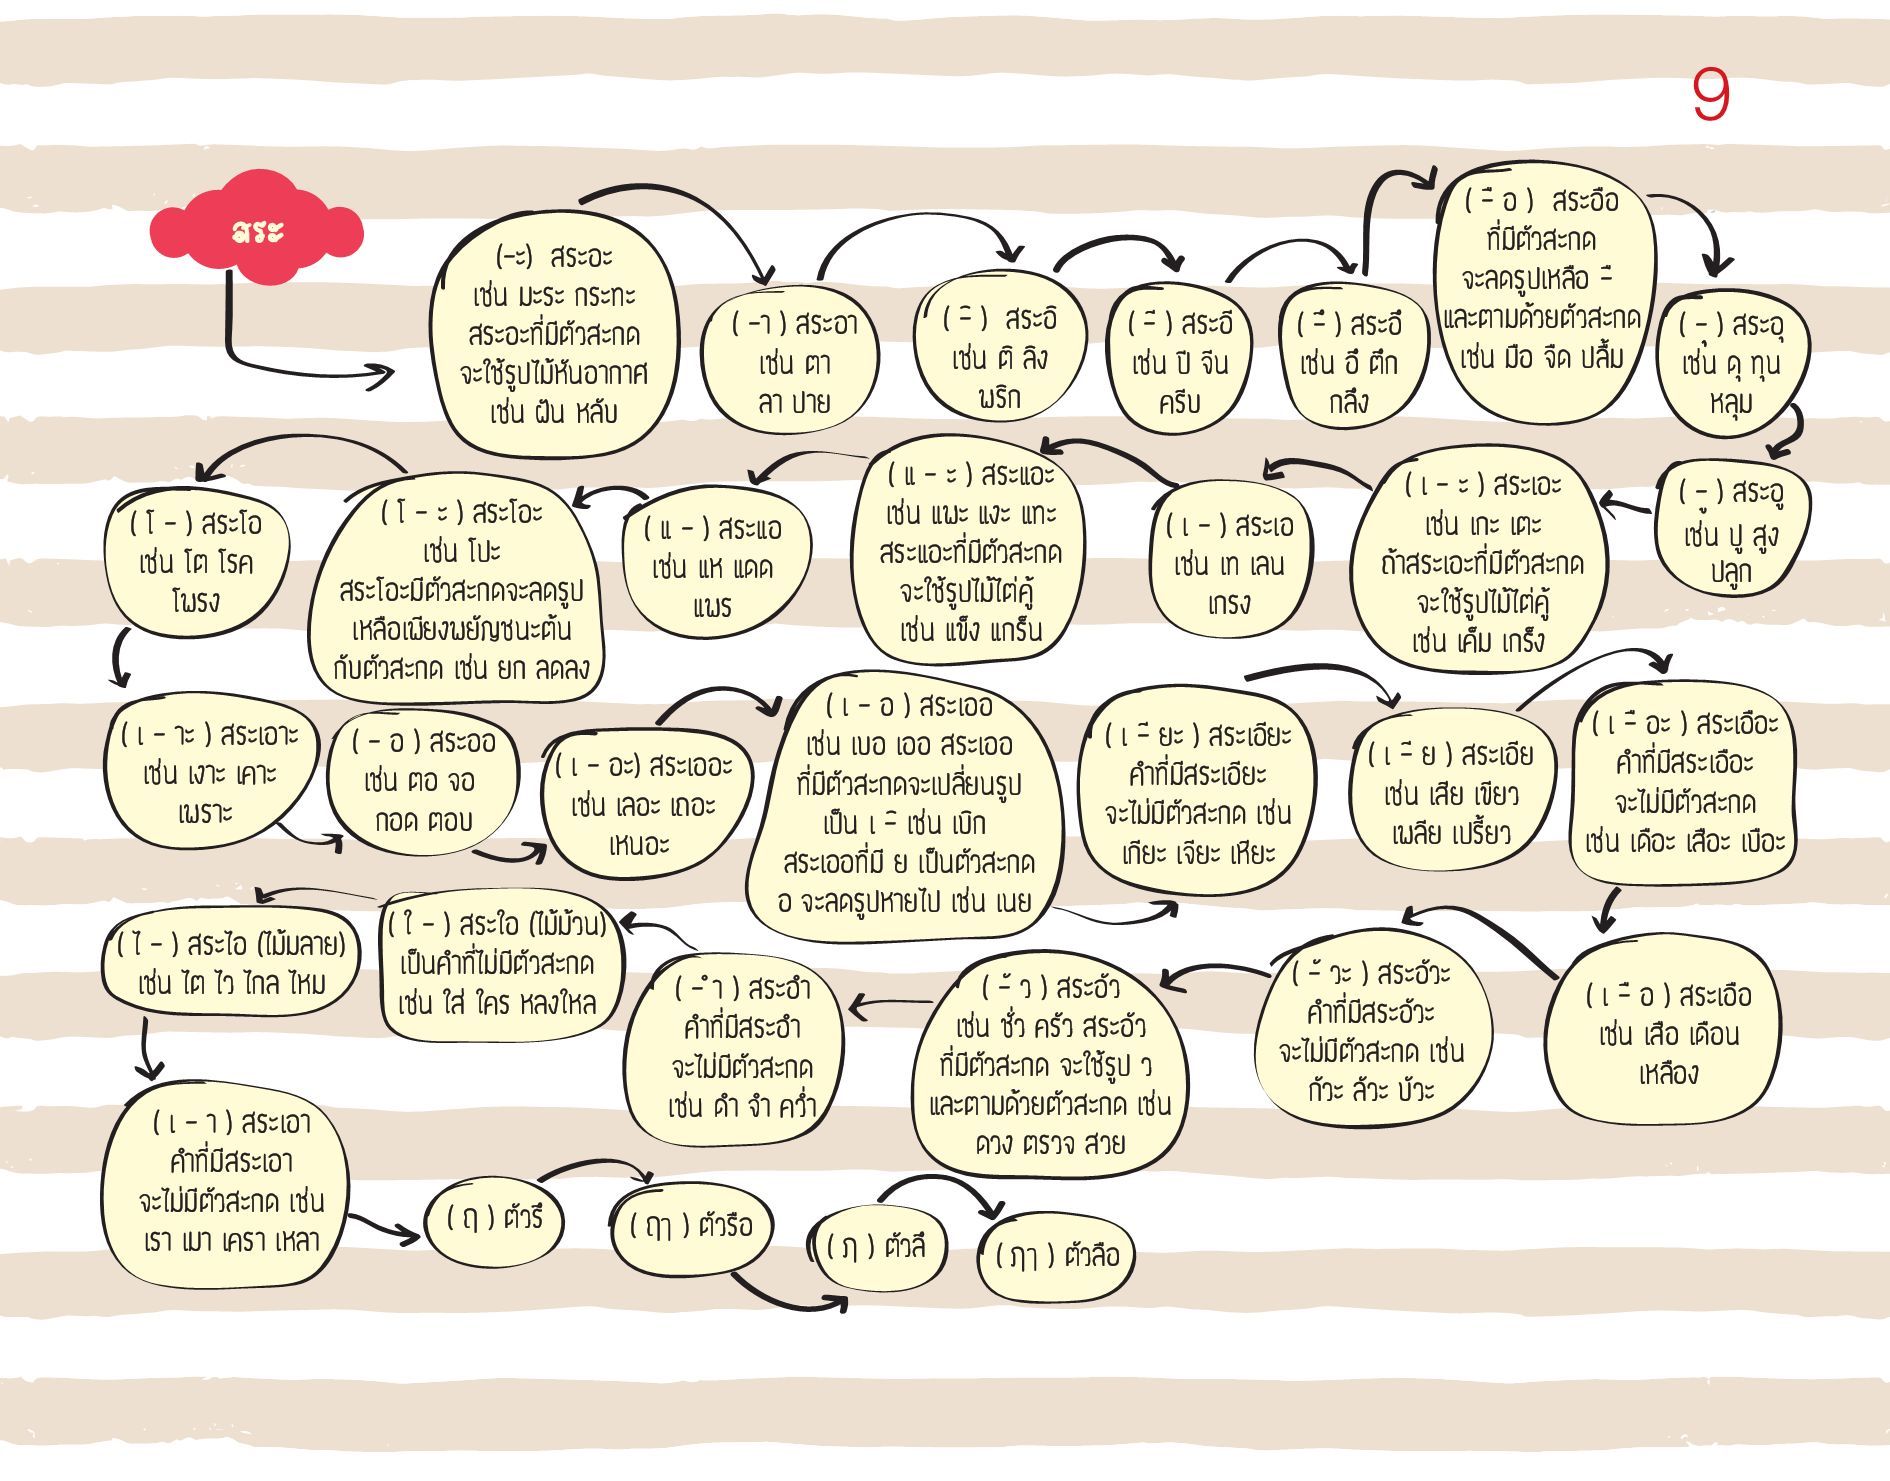 9
สระ
(-ะ) สระอะ
เช่น มะระ กระทะ
สระอะที่มีตัวสะกด
จะใช้รูปไม้หันอากาศ
เช่น ฝัน หลับ
( -า ) สระอา
เช่น ตา
ลา ปาย
( -ิ ) สระอิ
เช่น ติ ลิง
พริก
( -ี ) สระอี
เช่น ปี จีน
ครีบ
( -ึ ) สระอึ
เช่น อึ ตึก
กลึง
( -ื อ ) สระอือ
ที่มีตัวสะกด
จะลดรูปเหลือ -ื
และตามด้วยตัวสะกด
เช่น มือ จืด ปลื้ม
( -ุ ) สระอุ
เช่น ดุ ทุน
หลุม
( -ู ) สระอู
เช่น ปู สูง
ปลูก
( เ - ะ ) สระเอะ
เช่น เกะ เตะ
ถ้าสระเอะที่มีตัวสะกด
จะใช้รูปไม้ไต่คู้
เช่น เค็ม เกร็ง
( เ - ) สระเอ
เช่น เท เลน
เกรง
( แ - ะ ) สระแอะ
เช่น แพะ แงะ แทะ
สระแอะที่มีตัวสะกด
จะใช้รูปไม้ไต่คู้
เช่น แข็ง แกร็น
( แ - ) สระแอ
เช่น แห แดด
แพร
( โ - ะ ) สระโอะ
เช่น โปะ
สระโอะมีตัวสะกดจะลดรูป
เหลือเพียงพยัญชนะต้น
กับตัวสะกด เช่น ยก ลดลง
( โ - ) สระโอ
เช่น โต โรค
โพรง
( เ - าะ ) สระเอาะ
เช่น เงาะ เคาะ
เพราะ
( - อ ) สระออ
เช่น ตอ จอ
กอด ตอบ
( เ - อะ) สระเออะ
เช่น เลอะ เถอะ
เหนอะ
( เ - อ ) สระเออ
เช่น เบอ เออ สระเออ
ที่มีตัวสะกดจะเปลี่ยนรูป
เป็น เ -ิ เช่น เบิก
สระเออที่มี ย เป็นตัวสะกด
อ จะลดรูปหายไป เช่น เนย
( เ -ี ยะ ) สระเอียะ
คำที่มีสระเอียะ
จะไม่มีตัวสะกด เช่น
เกียะ เจียะ เหียะ
( เ -ี ย ) สระเอีย
เช่น เสีย เขียว
เพลีย เปรี้ยว
( เ -ื อะ ) สระเอือะ
คำที่มีสระเอือะ
จะไม่มีตัวสะกด
เช่น เดือะ เสือะ เบือะ
( เ -ื อ ) สระเอือ
เช่น เสือ เดือน
เหลือง
( -ั วะ ) สระอัวะ
คำที่มีสระอัวะ
จะไม่มีตัวสะกด เช่น
กัวะ ลัวะ บัวะ
( -ั ว ) สระอัว
เช่น ชั่ว ครัว สระอัว
ที่มีตัวสะกด จะใช้รูป ว
และตามด้วยตัวสะกด เช่น
ดวง ตรวจ สวย
( -ำ ) สระอำ
คำที่มีสระอำ
จะไม่มีตัวสะกด
เช่น ดำ จำ คว่ำ
( ใ - ) สระใอ (ไม้ม้วน)
เป็นคำที่ไม่มีตัวสะกด
เช่น ใส่ ใคร หลงใหล
( ไ - ) สระไอ (ไม้มลาย)
เช่น ไต ไว ไกล ไหม
( เ - า ) สระเอา
คำที่มีสระเอา
จะไม่มีตัวสะกด เช่น
เรา เมา เครา เหลา
( ฤ ) ตัวรึ
( ฤๅ ) ตัวรือ
( ฦ ) ตัวลึ
( ฦๅ ) ตัวลือ